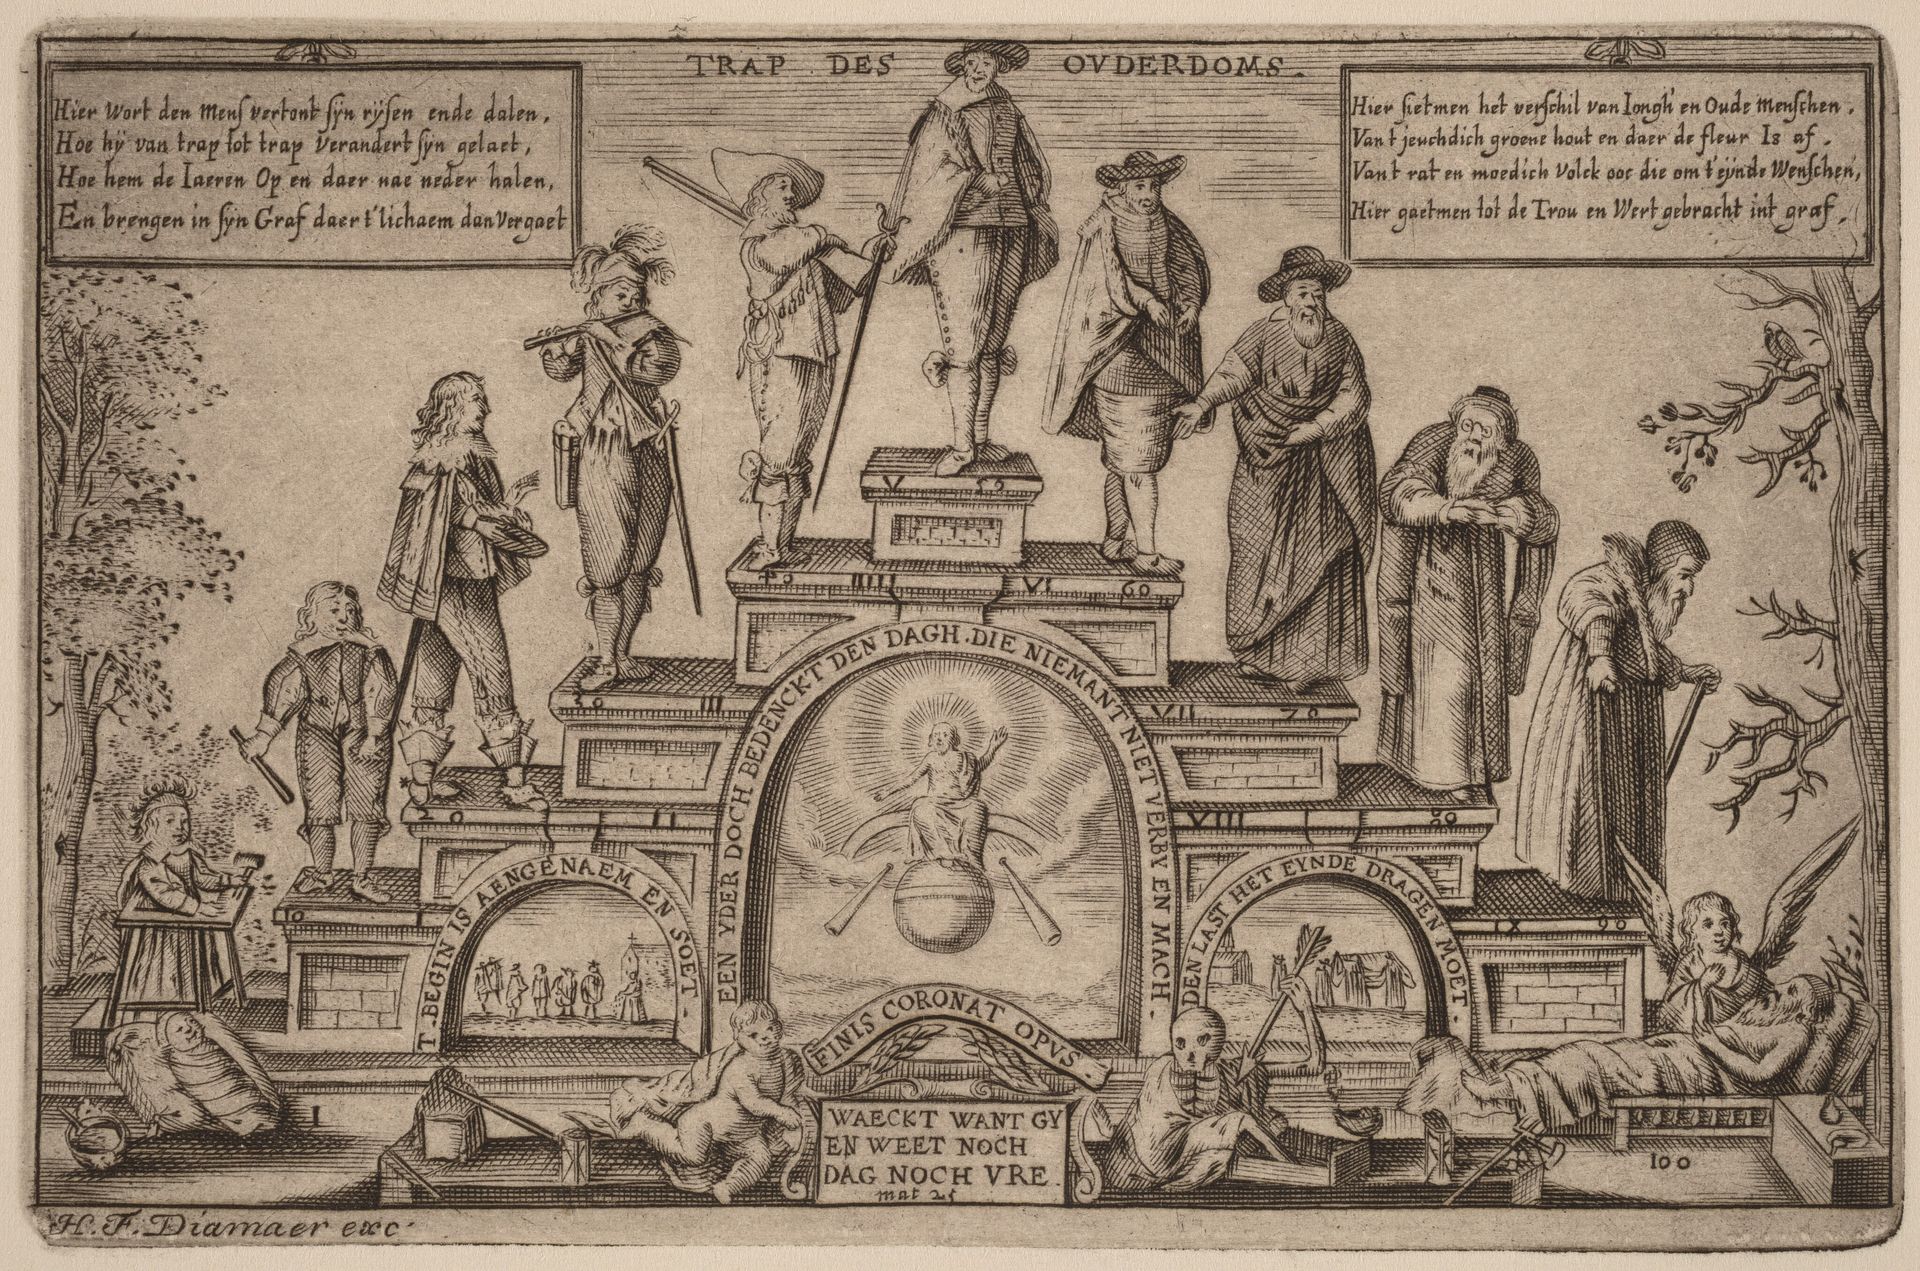 TRAP DES OVDERDOMS.
Hier wort den Mens vertont sÿn rÿsen ende dalen,
Hoe hÿ van trap tot trap Verandert sÿn gelaet,
Hoe hem de Iaeren Op en daer nae neder halen,
En brengen in sÿn Graf daer t'lichaem dan vergaet
Hier sietmen het verschil van Iongh' en Oude Menschen,
Van t jeuchdich groene hout en daer de fleur Is af,
Van t rat en moedich Volck ooc die om t'eÿnde Wenschen,
Hier gaetmen tot de Trou en Wert gebracht int graf,
V 50
40 IIII VI 60
30 III VII 70
20 II VIII 80
10 I IX 90
EEN YDER DOCH BEDENCKT DEN DAGH. DIE NIEMANT NIET VERBY EN MACH.
T. BEGIN IS AENGENAEM EN SOET.
DEN LAST HET EYNDE DRAGEN MOET.
FINIS CORONAT OPVS.
WAECKT WANT GY
EN WEET NOCH
DAG NOCH VRE.
mat 25
1
100
H. F. Diamaer exc.